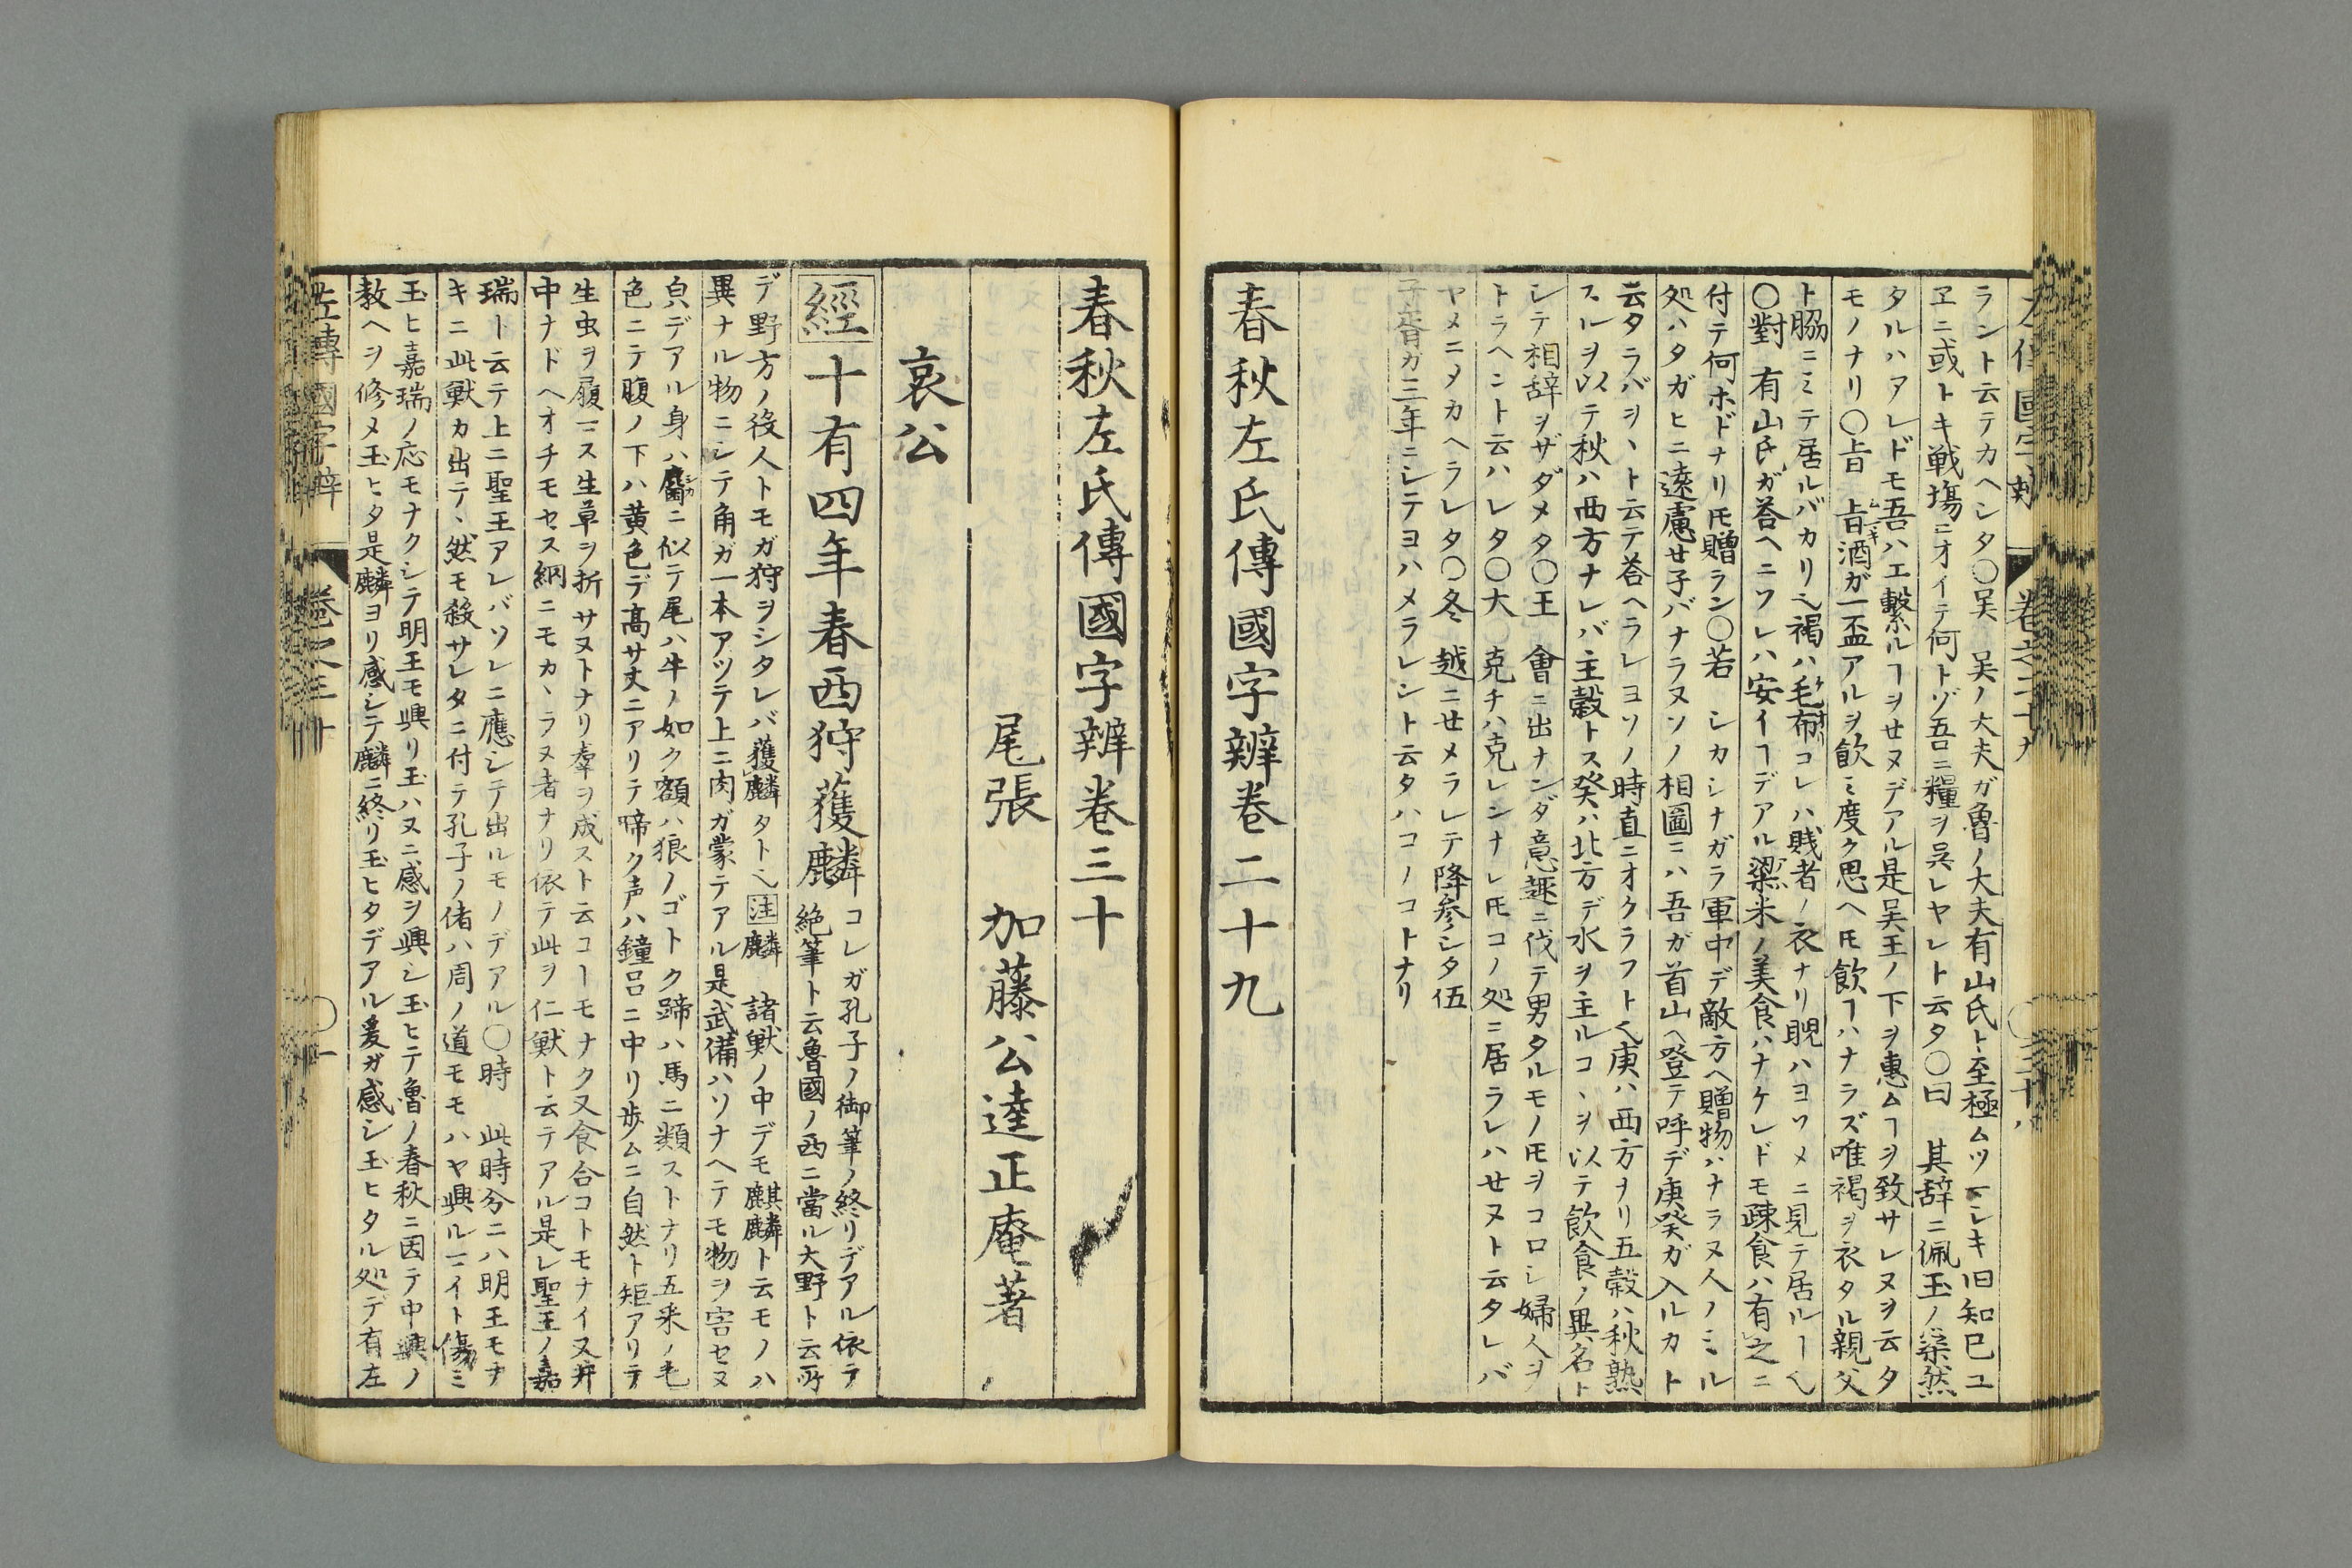 ラント云テカヘシタ〇呉　呉ノ大夫ガ魯ノ大夫有山氏ト至極ムツマシキ旧知已ユ
ヱニ或トキ戦塲ニオイテ何トゾ吾ニ糧ヲ呉レヤレト云タ〇曰　其辞ニ佩玉ノ蘂然
タルハアレドモ吾ハエ繋ルヿヲせヌデアル是呉王ノ下ヲ惠ムヿヲ致サレヌヲ云タ
モノナリ〇旨　旨酒ガ一盃アルヲ飲ミ度ク思ヘ𪜈飲ヿハナラズ唯褐ヲ衣タル親父
ト脇ニミテ居ルバカリ也褐ハ毛布コレハ賎者ノ衣ナリ睨ハヨソメニ見テ居ルヿ也
〇對　有山氏ガ荅ヘニソレハ安イヿデアル粱米ノ美食ハナケレドモ疎食ハ有之ニ
付テ何ホドナリ𪜈贈ラン〇若　シカシナガラ軍中デ敵方ヘ贈物ハナラヌ人ノミル
処ハタガヒニ遠慮せ子バナラヌソノ相圖ニハ吾ガ首山ヘ登テ呼デ庚癸ガ入ルカト
云タラバヲヽト云テ荅ヘラレヨソノ時直ニオクラフト也庚ハ西方ナリ五穀ハ秋熟
スルヲ以テ秋ハ西方ナレバ主穀トス癸ハ北方デ水ヲ主ルコヽヲ以テ飲食ノ異名ト
シテ相辞ヲザダメタ〇王　會ニ出ナンダ意趣ニ伐テ男タルモノ𪜈ヲコロシ婦人ヲ
トラヘント云ハレタ〇大〇克チハ克レシナレ𪜈コノ処ニ居ラレハせヌト云タレバ
ヤメニメカヘラレタ〇冬　越ニせメラレテ降参シタ伍
子胥ガ三年ニシテヨハメラレント云タハコノコトナリ
春秋左氏傳國字辨卷二十九
春秋左氏傳國字辨卷三十
尾張　加藤公逵正庵著
哀公
經十有四年春西狩獲麟
コレガ孔子ノ御筆ノ終リデアル依テ
絶筆ト云魯國ノ西ニ當ル大野ト云所
デ野方ノ役人トモガ狩ヲシタレバ獲麟タト也注麟　諸獣ノ中デモ麒麟ト云モノハ
異ナル物ニシテ角ガ一本アツテ上ニ肉ガ蒙テアル是武備ハソナヘテモ物ヲ害セヌ
㒵デアル身ハ麕ニ似テ尾ハ牛ノ如ク額ハ狼ノゴトク蹄ハ馬ニ類ストナリ五釆ノ毛
色ニテ腹ノ下ハ黄色デ高サ丈ニアリテ啼ク声ハ鐘呂ニ中リ歩ムニ自然ト矩アリテ
生虫ヲ履マス生草ヲ折サヌトナリ羣ヲ成スト云コーモナク又食合コトモナイ又井
中ナドヘオチモセス網ニモカヽラヌ者ナリ依テ此ヲ仁獣ト云テアル是レ聖王ノ嘉
瑞ト云テ上ニ聖王アレバソレニ應シテ出ルモノデアル〇時　此時分ニハ明王モナ
キニ此獣カ出テヽ然モ殺サレタニ付テ孔子ノ偖ハ周ノ道モモハヤ興ルマイト傷ミ
玉ヒ嘉瑞ノ応モナクシテ明王モ興リ玉ハヌニ感ヲ興シ玉ヒテ魯ノ春秋ニ因テ中興ノ
教ヘヲ修メ玉ヒタ是麟ヨリ感シテ麟ニ終リ玉ヒタデアル爰ガ感シ玉ヒタル処デ有左
左傳國字辨　卷之三十　〇一